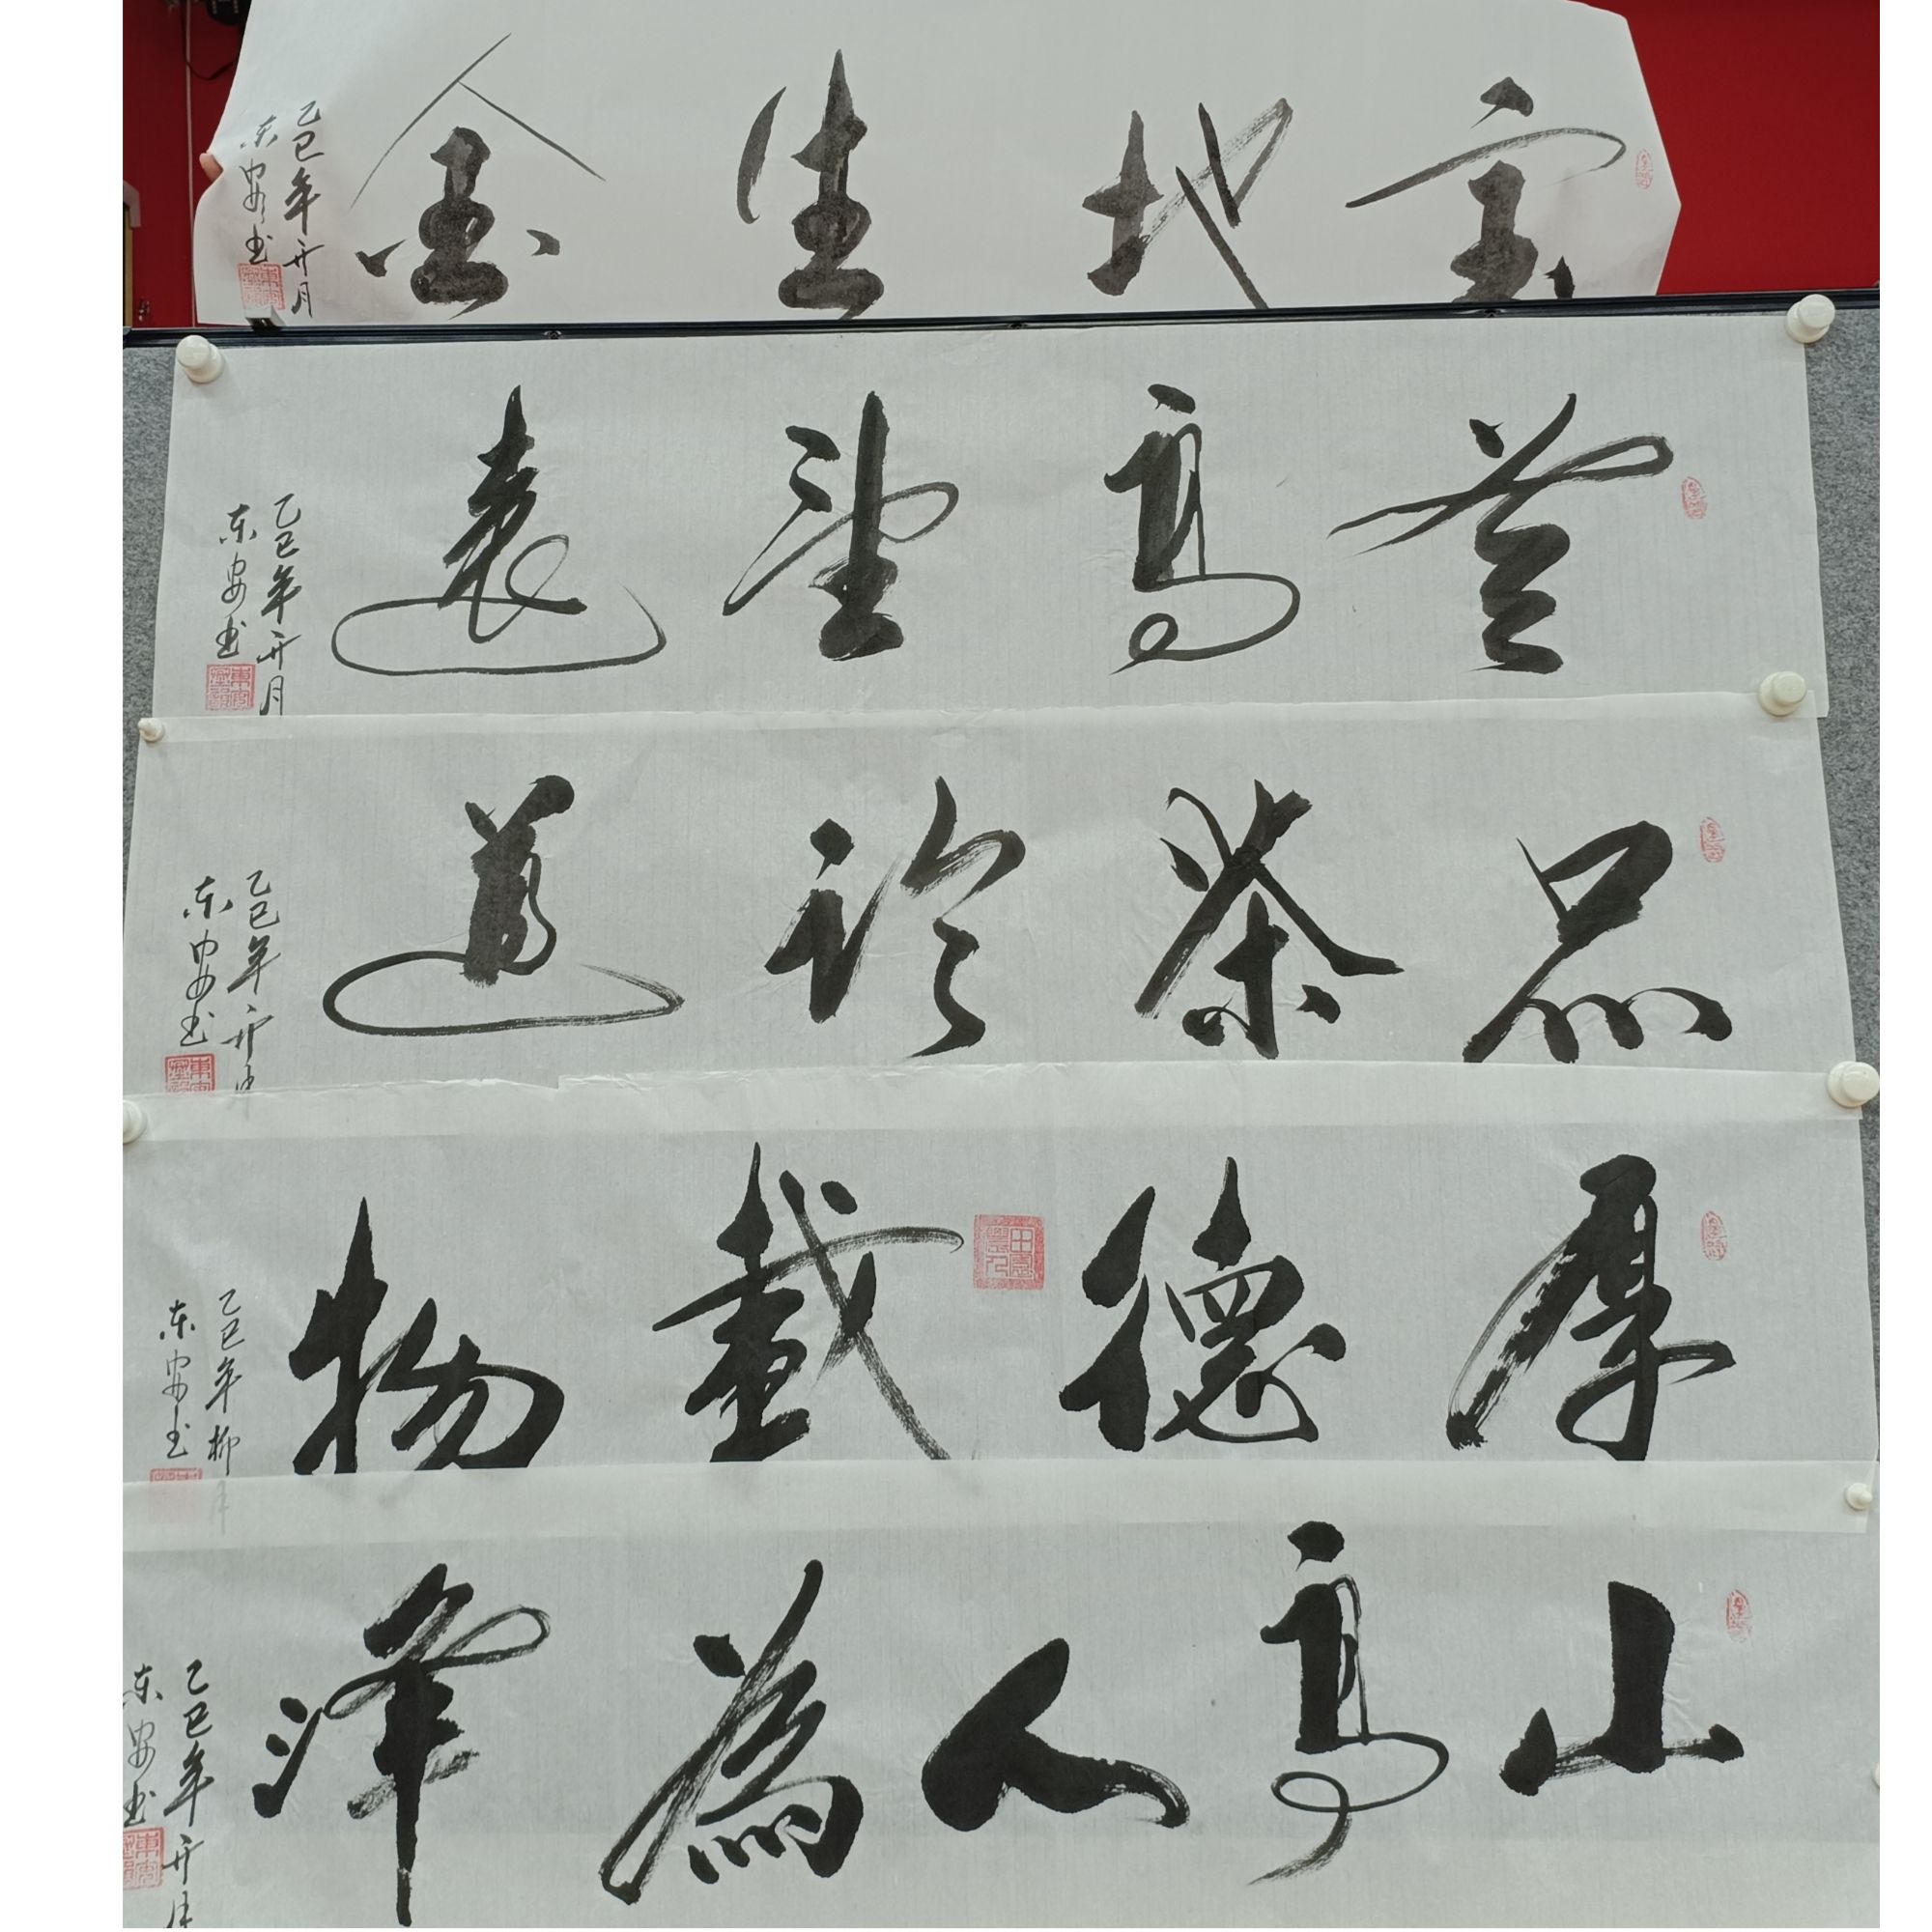 宝地生金
乙巳年开月
东安书
登高望远
乙巳年开月
东安书
品茶论道
乙巳年开月
东安书
厚德载物
乙巳年柳月
东安书
山高人为峰
乙巳年开月
东安书